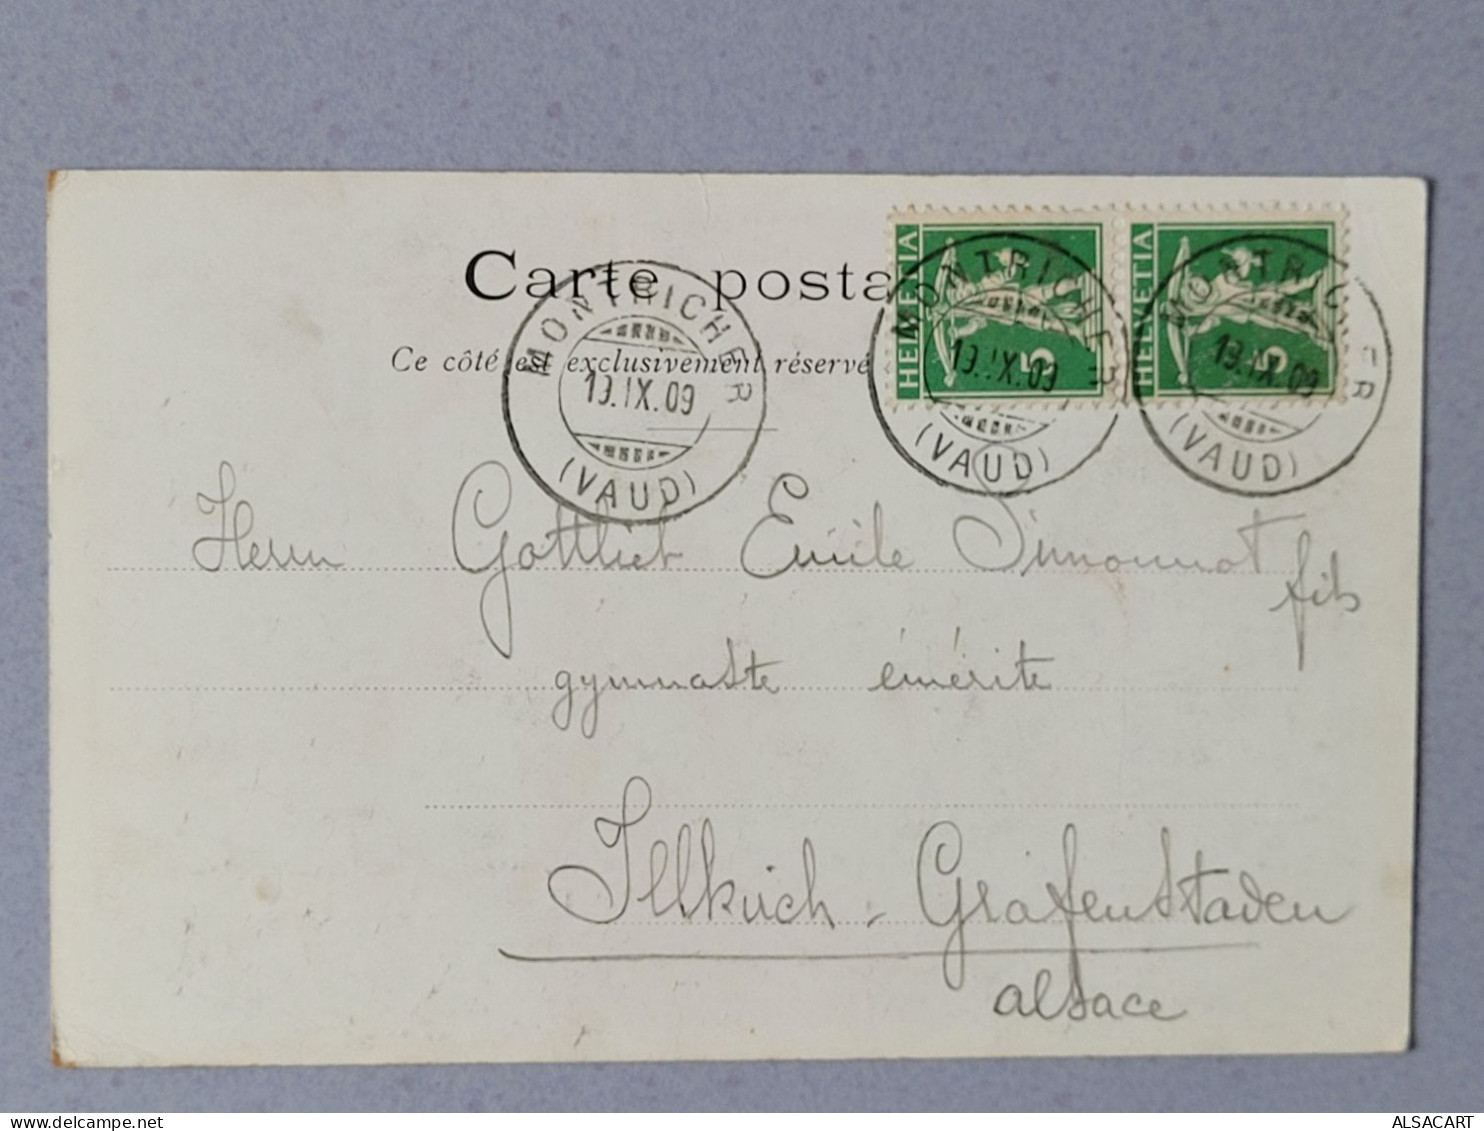 Carte posta
Ce côté est exclusivement réservé
MONTRICHER
19.IX.09
(VAUD)
HELVETIA
5
MONTRICHER
19.IX.09
(VAUD)
HELVETIA
5
MONTRICHER
19.IX.09
(VAUD)
Herrn Gottlieb Emile Simonnot
fils
gymnaste émérite
Illkirch - Grafenstaden
alsace
ALSACART